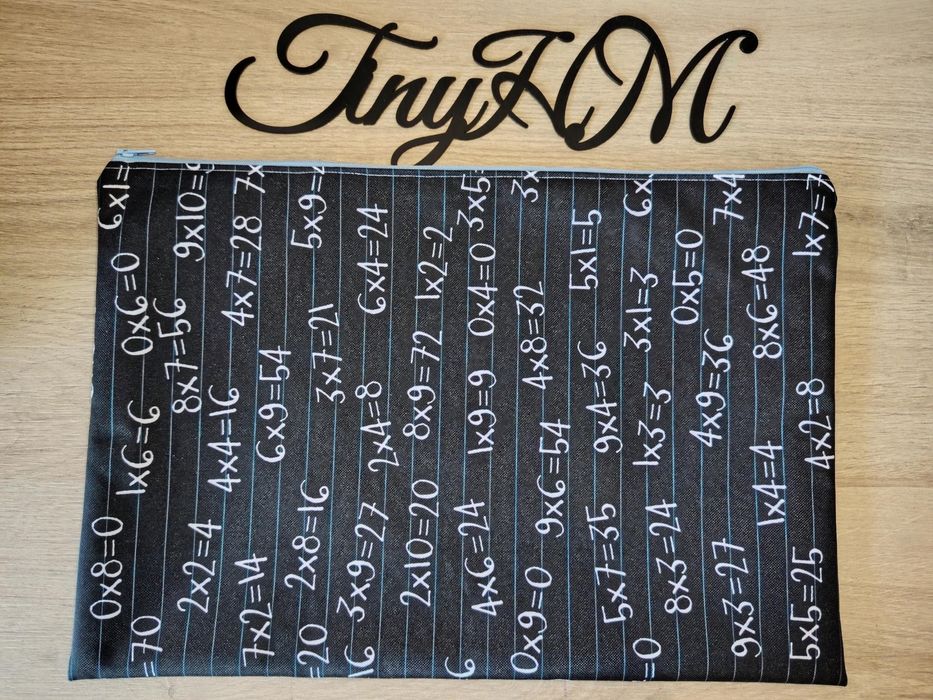 TinyHM
0x8=0 6x1=
=70 1x6=6 0x6=0
2x2=4 8x7=56 9x10=9
7x2=14 4x4=16 4x7=28 7x
=20 2x8=16 6x9=54 5x9=4
16 3x9=27 2x4=8 3x7=21 6x4=24
2x10=20 8x9=72 1x2=2
6 4x6=24 1x9=9 0x4=0 3x5=
0x9=0 9x6=54 4x8=32 3x
5x7=35 9x4=36 5x1=5
=0 8x3=24 1x3=3 3x1=3 6x
9x3=27 4x9=36 0x5=0 7x4
1x4=4 8x6=48
5x5=25 4x2=8 1x7=7